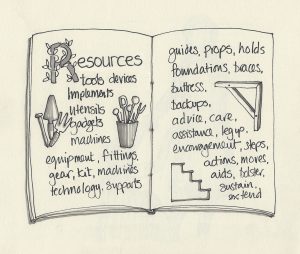 Resources
tools devices
Implements
utensils
gadgets
machines
equipment, fittings,
gear, kit, machines
technology, supports
guides, props, holds
foundations, braces,
buttress,
backups,
advice, care,
assistance, leg up.
encouragement, steps,
actions, moves.
aids, bolster.
sustain.
extend